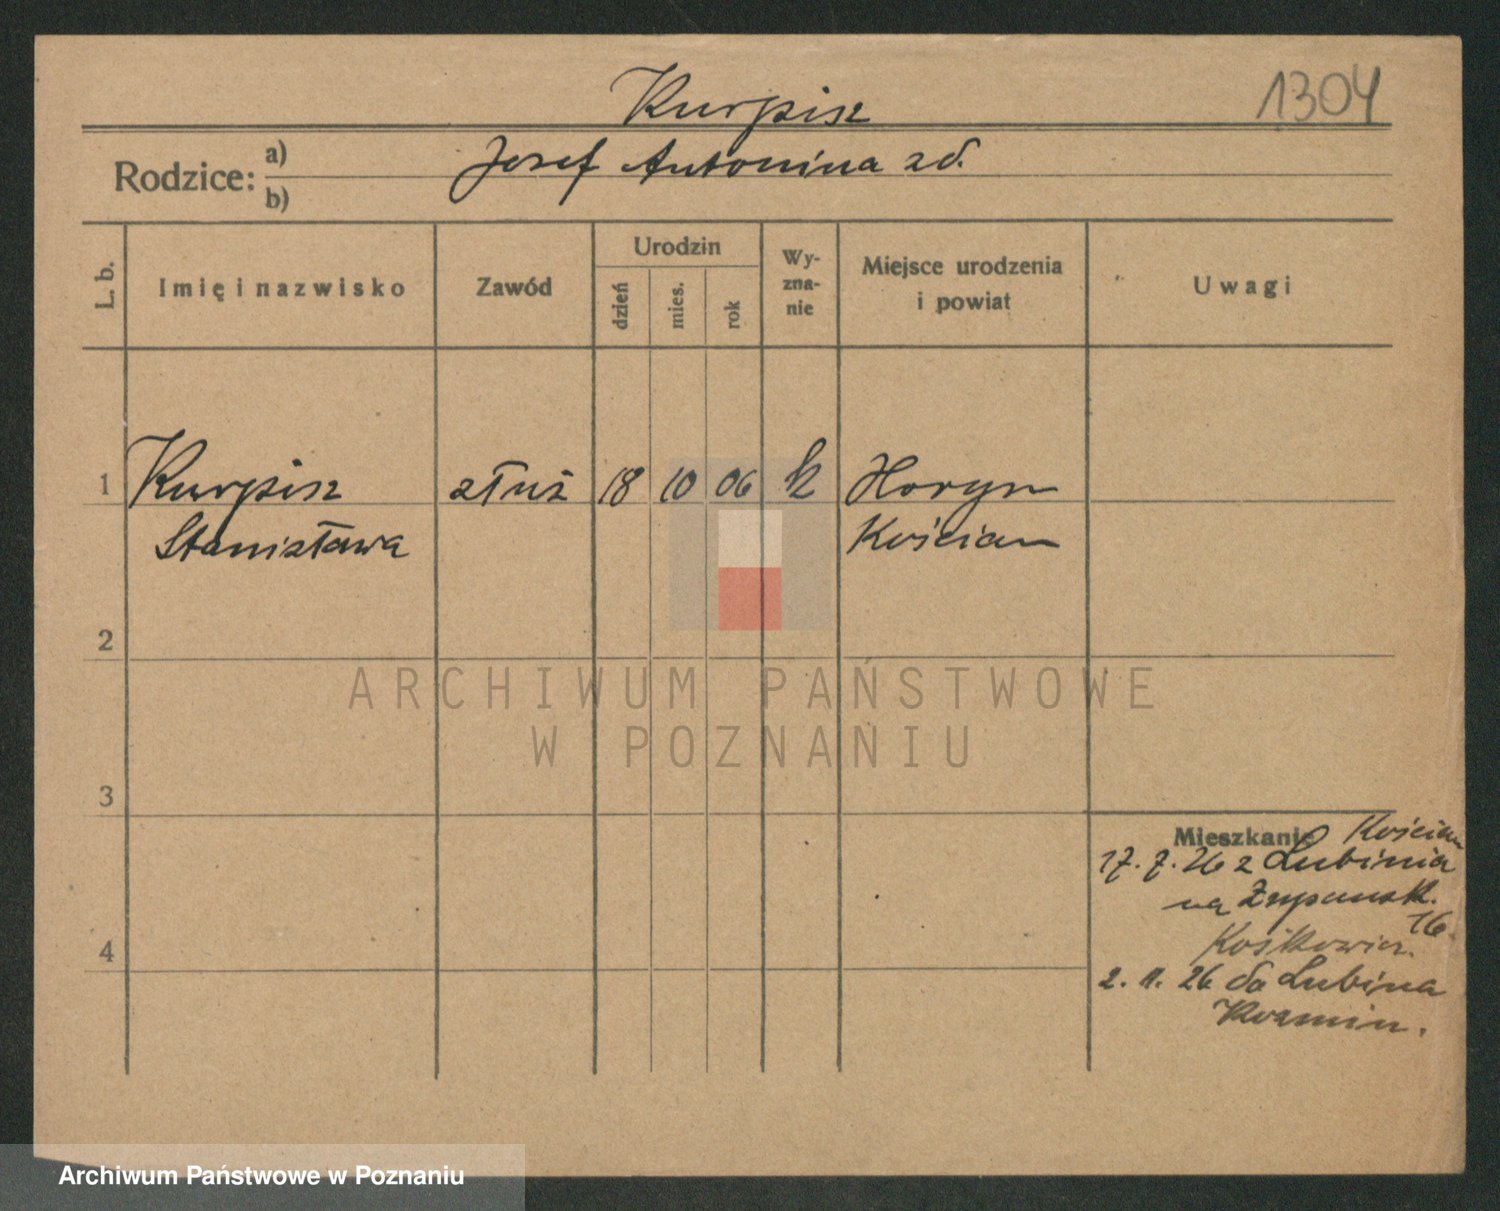 Kurpisz
1304
Rodzice: a)
Josef Antonina zd.
b)
L. b.
Imię i nazwisko
Zawód
Urodzin
dzień
mies.
rok
Wy-
zna-
nie
Miejsce urodzenia
i powiat
Uwagi
1 Kurpisz służ 18 10 06 k Horyn
Stanisława Kościan
2
ARCHIWUM PAŃSTWOWE
W POZNANIU
3
Mieszkanie Kościan
17. 7. 26 z Lubinia
na
16
4
2. 11. 26 do Lubina
Kozmin.
Archiwum Państwowe w Poznaniu